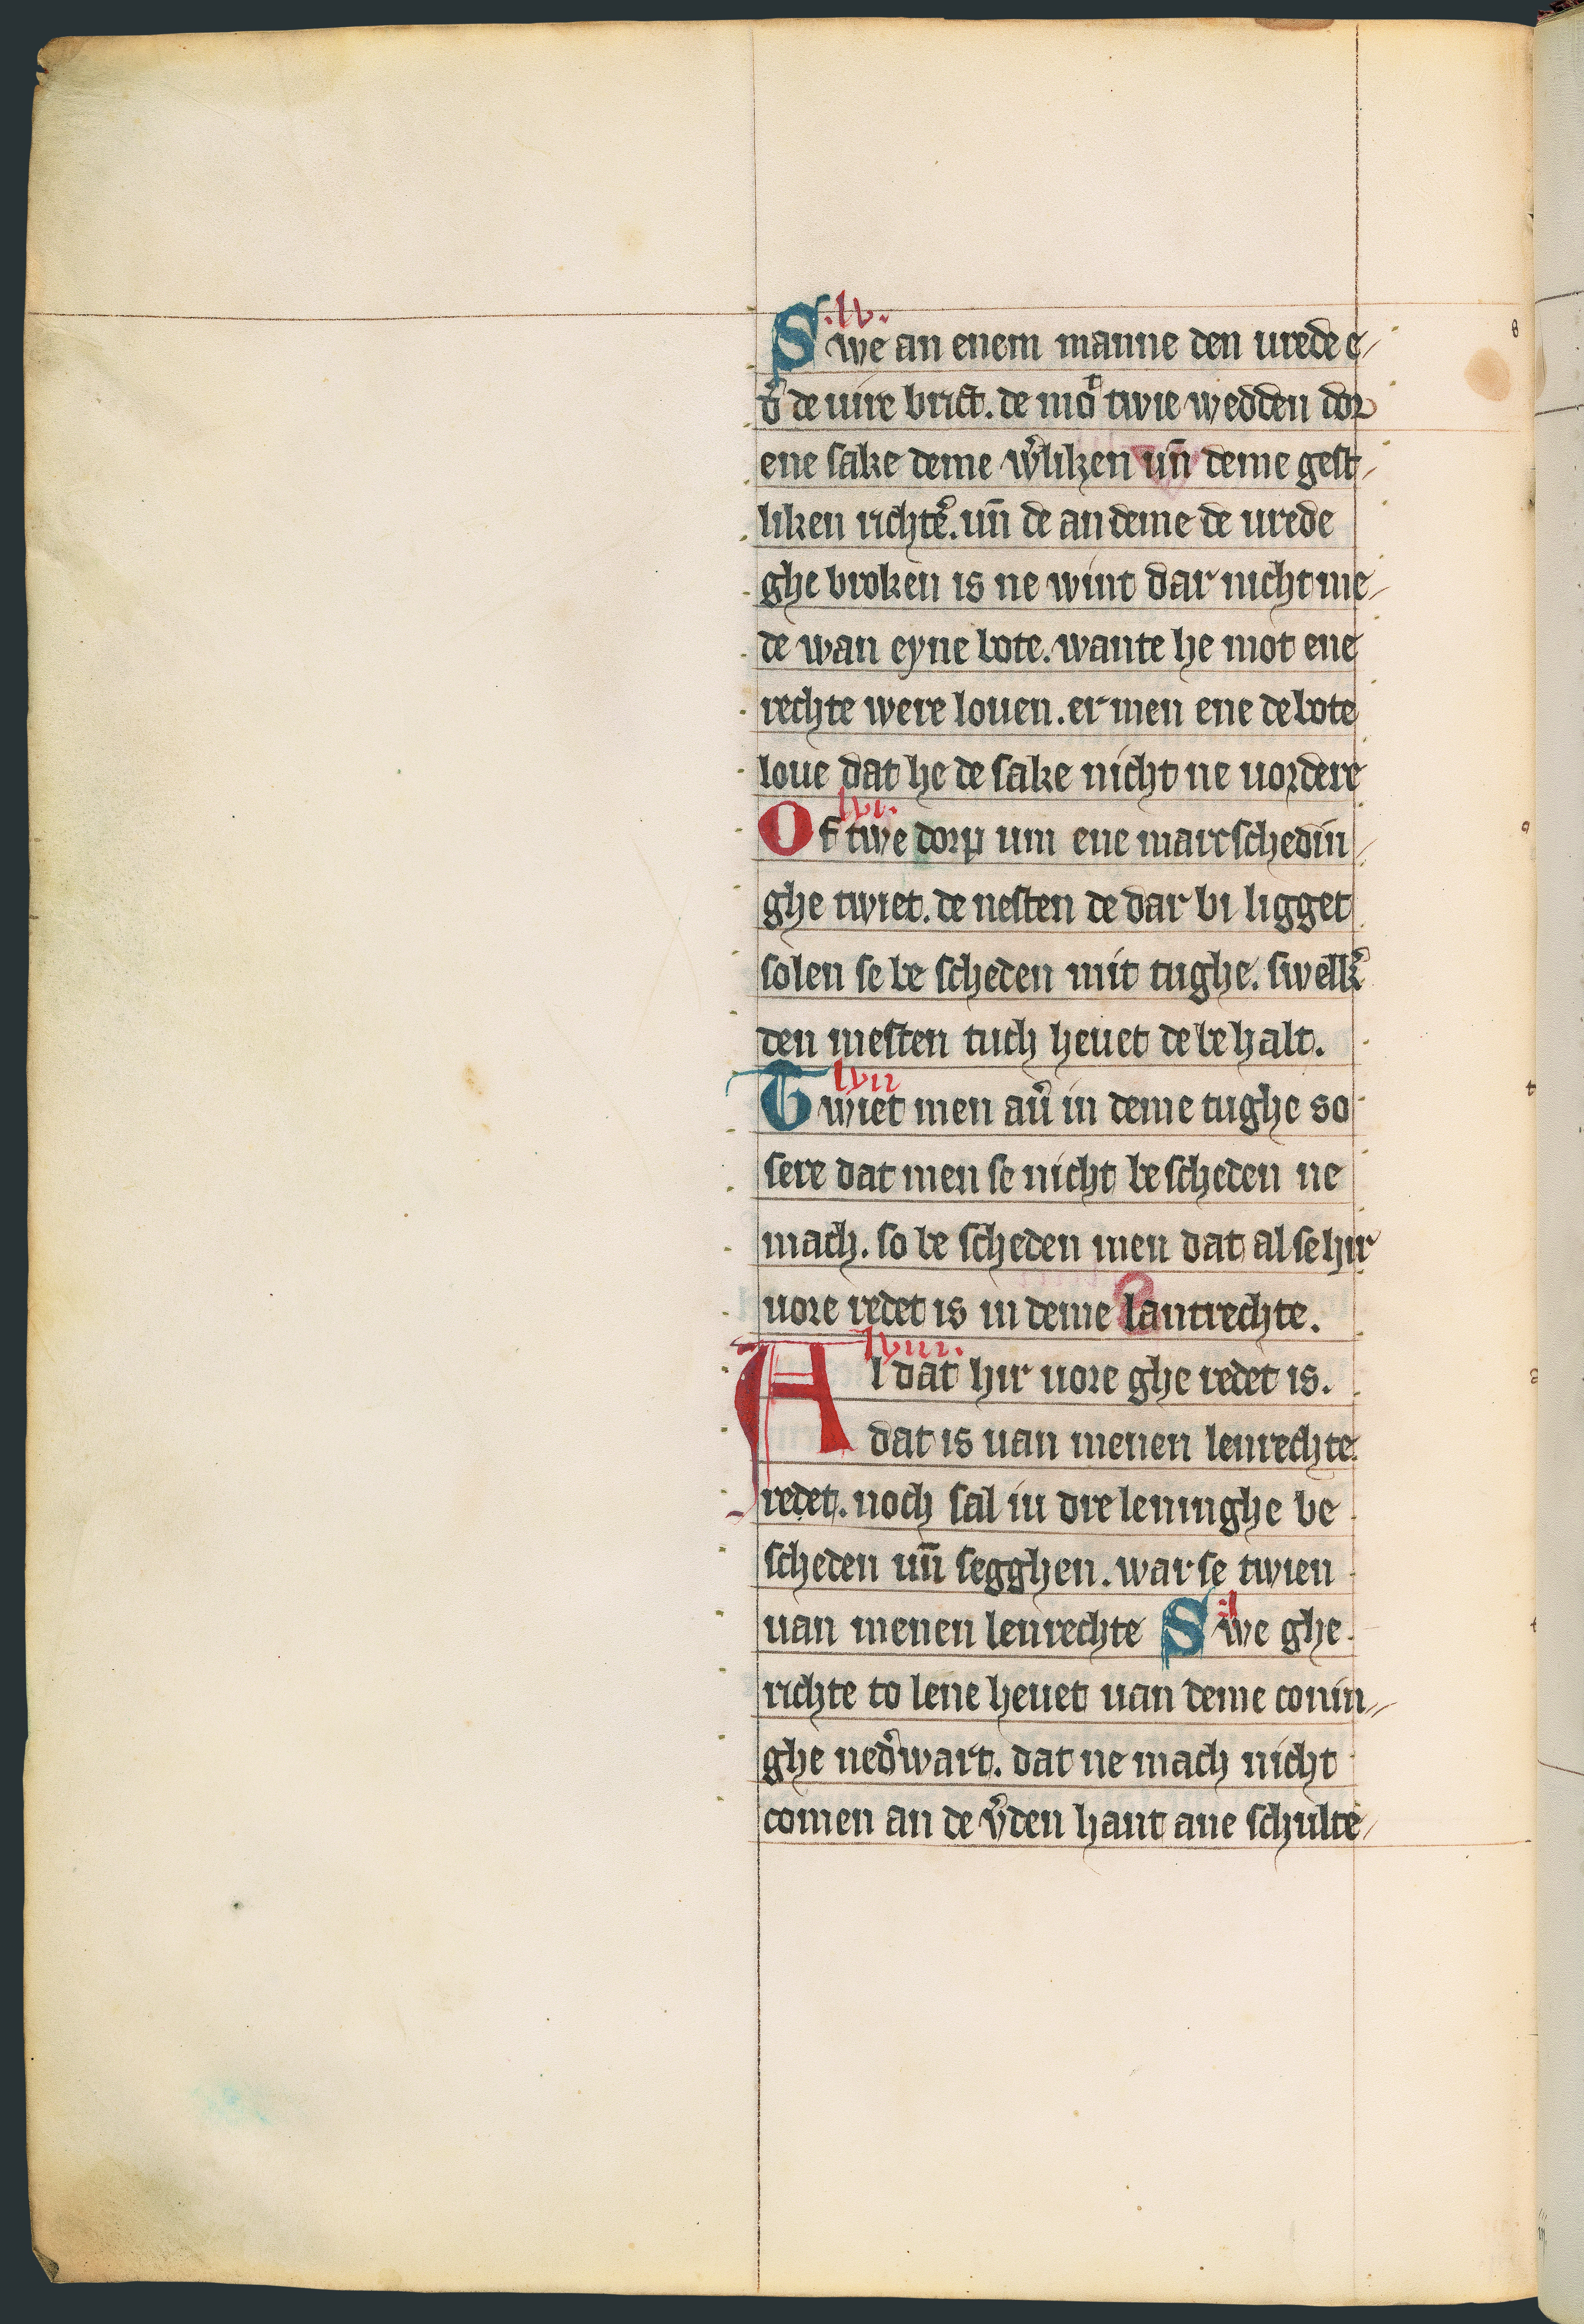 .lv.
Swe an enem manne den urede e-
d̛ de uire brict. de moͭ twie wedden dor
ene sake deme w̛liken un̄ deme gest-
liken richte̛. un̄ de an deme de urede
ghe broken is ne wint dar nicht me-
de wan eyne bote. wante he mot ene
rechte were louen. er men ene de bote
loue dat he de sake nicht ne uordere
lvi.
Of twe dorp um ene marcschedin-
ghe twiet. de nesten de dar bi ligget
solen se be scheden mit tughe. swelk̛
den mesten tuch heuet de be halt.
lvii
Twiet men aư in deme tughe so
sere dat men se nicht be scheden ne
mach. so be scheden men dat al se hir
uore redet is in deme lantrechte.
lviii.
Al dat hir uore ghe redet is.
dat is uan menen lenrechte
redet. noch sal iu dre leninghe be
scheden un̄ segghen. war se twien
uan menen lenrechte Swe ghe
richte to lene heuet uan deme conin-
ghe ned̛wart. dat ne mach nicht
comen an de v̛den hant ane schulte-